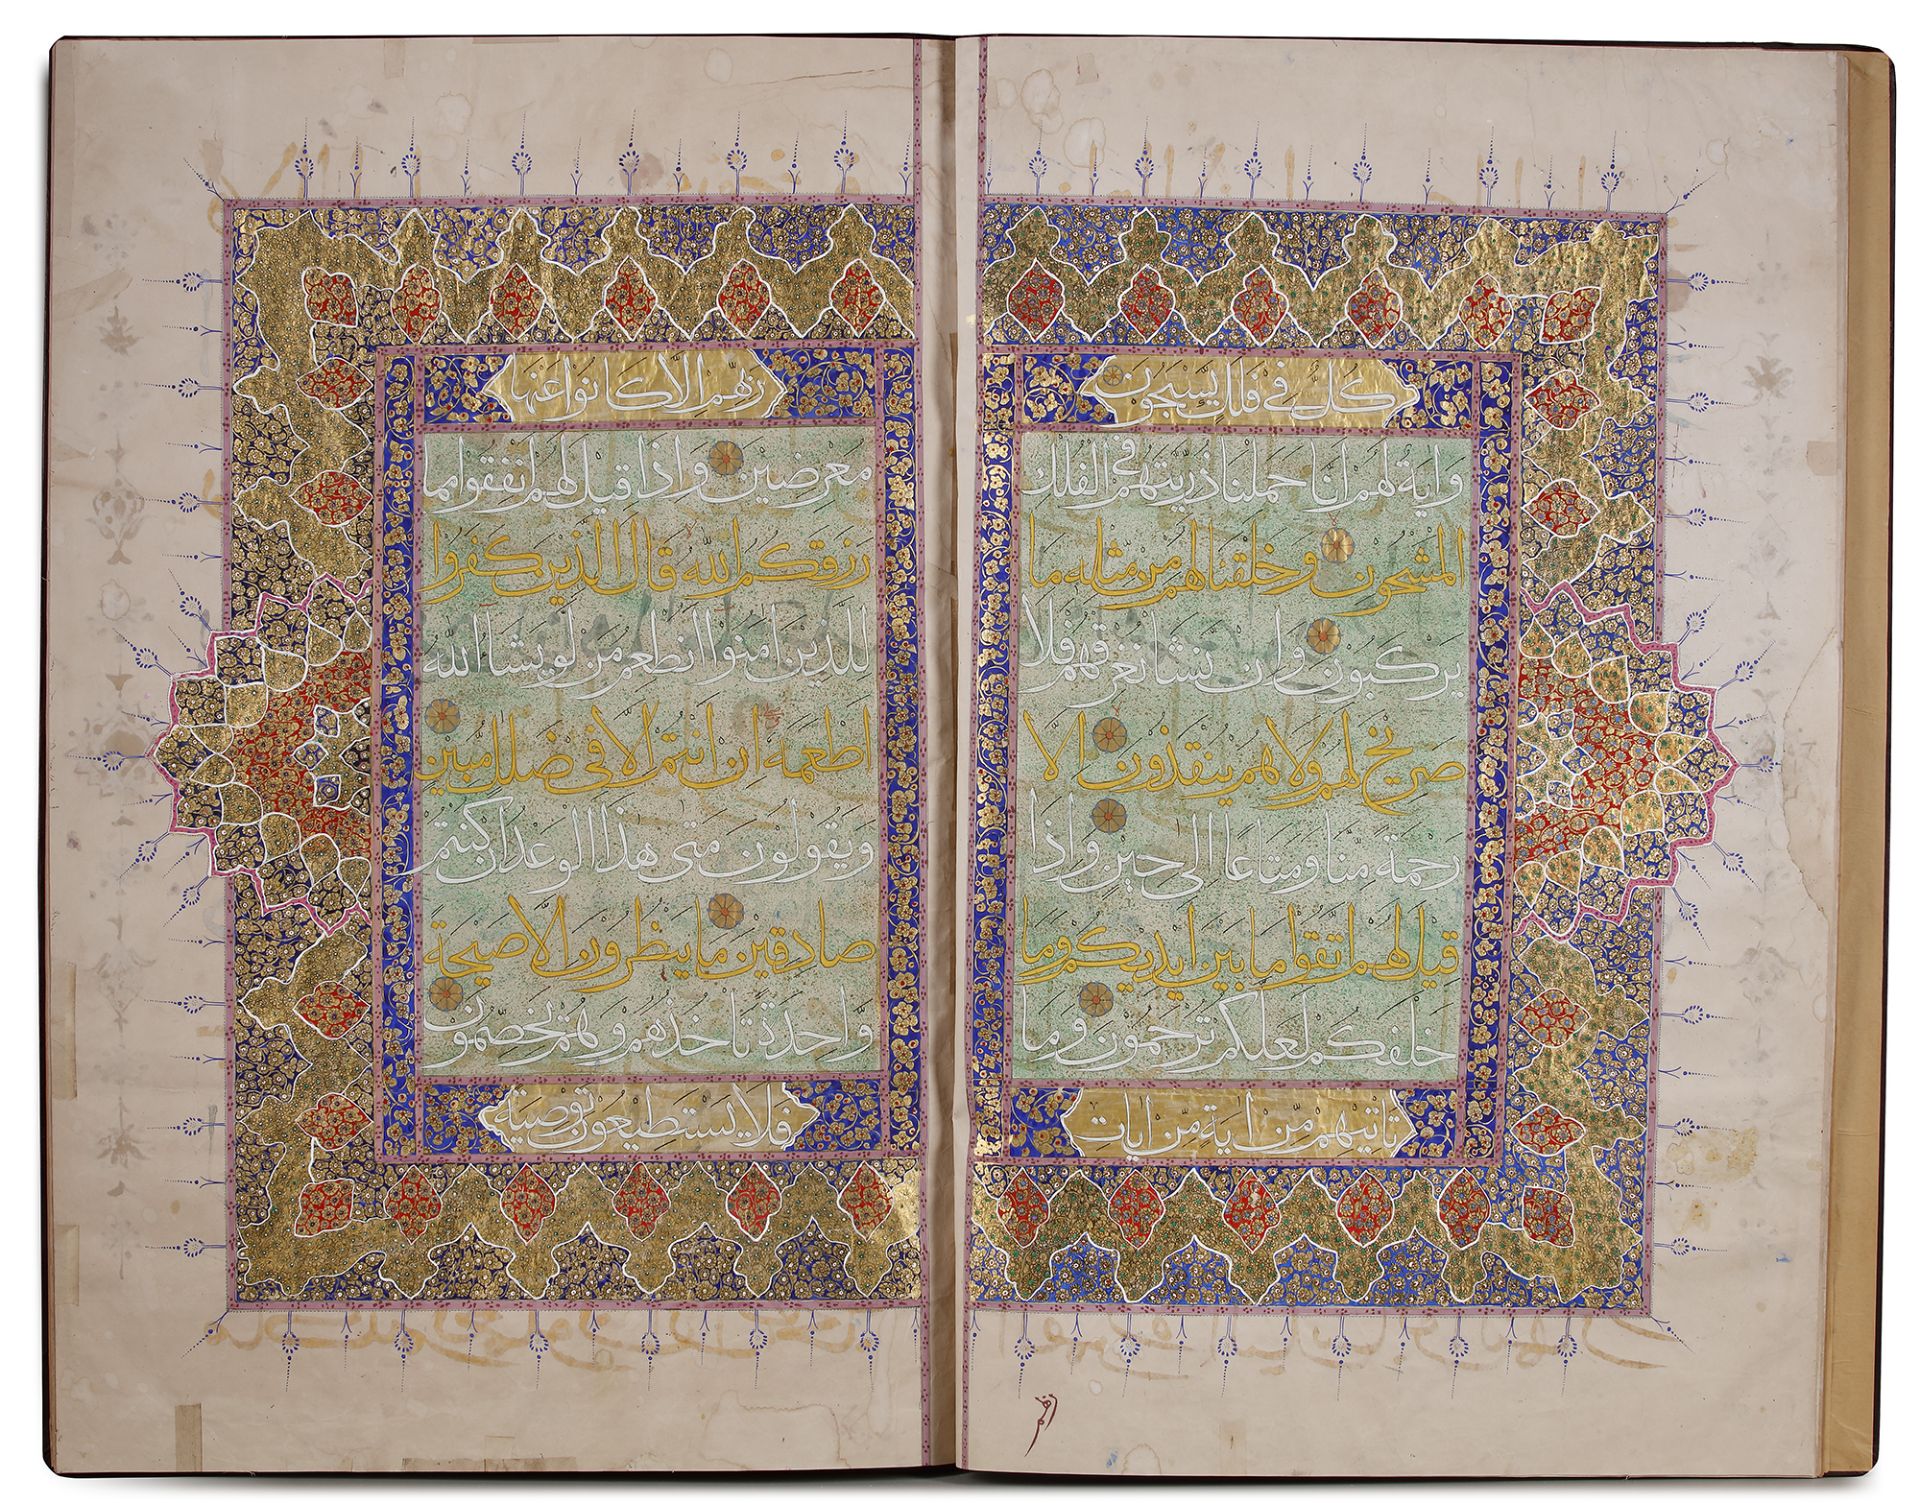 كُلٌّ فِي فَلَكٍ يَسْبَحُونَ
وآية لهم انا حملنا ذريتهم في الفلك
المشحون وخلقنا لهم من مثله ما
يركبون وان نشا نغرقهم فلا
صريخ لهم ولا هم ينقذون الا
رحمة منا ومتاعا الى حين واذا
قيل لهم اتقوا ما بين ايديكم وما
خلفكم لعلكم ترحمون وما
تاتيهم من اية من ايات
ربهم الا كانوا عنها
معرضين واذا قيل لهم انفقوا مما
رزقكم الله قال الذين كفروا
للذين امنوا انطعم من لو يشا الله
اطعمه ان انتم الا في ضلل مبين
ويقولون متى هذا الوعد ان كنتم
صادقين ما ينظرون الا صيحة
واحدة تاخذهم وهم يخصمون
فلا يستطيعون توصية